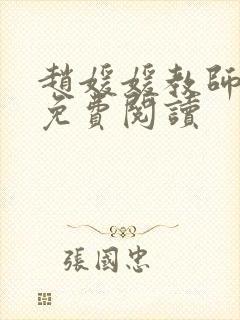 趙媛媛教師
免費閱讀
張國忠